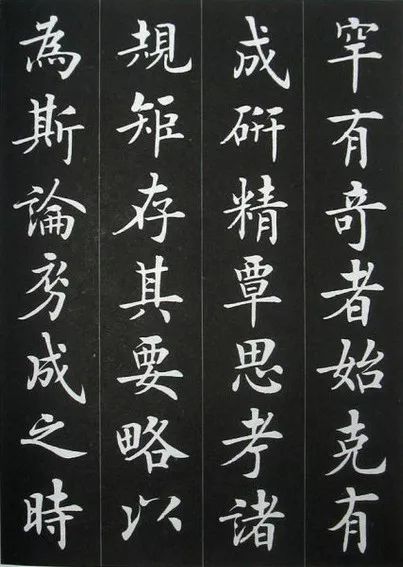 罕有奇者始克有
成研精覃思考諸
規矩存其要略以
為斯論庶成之時